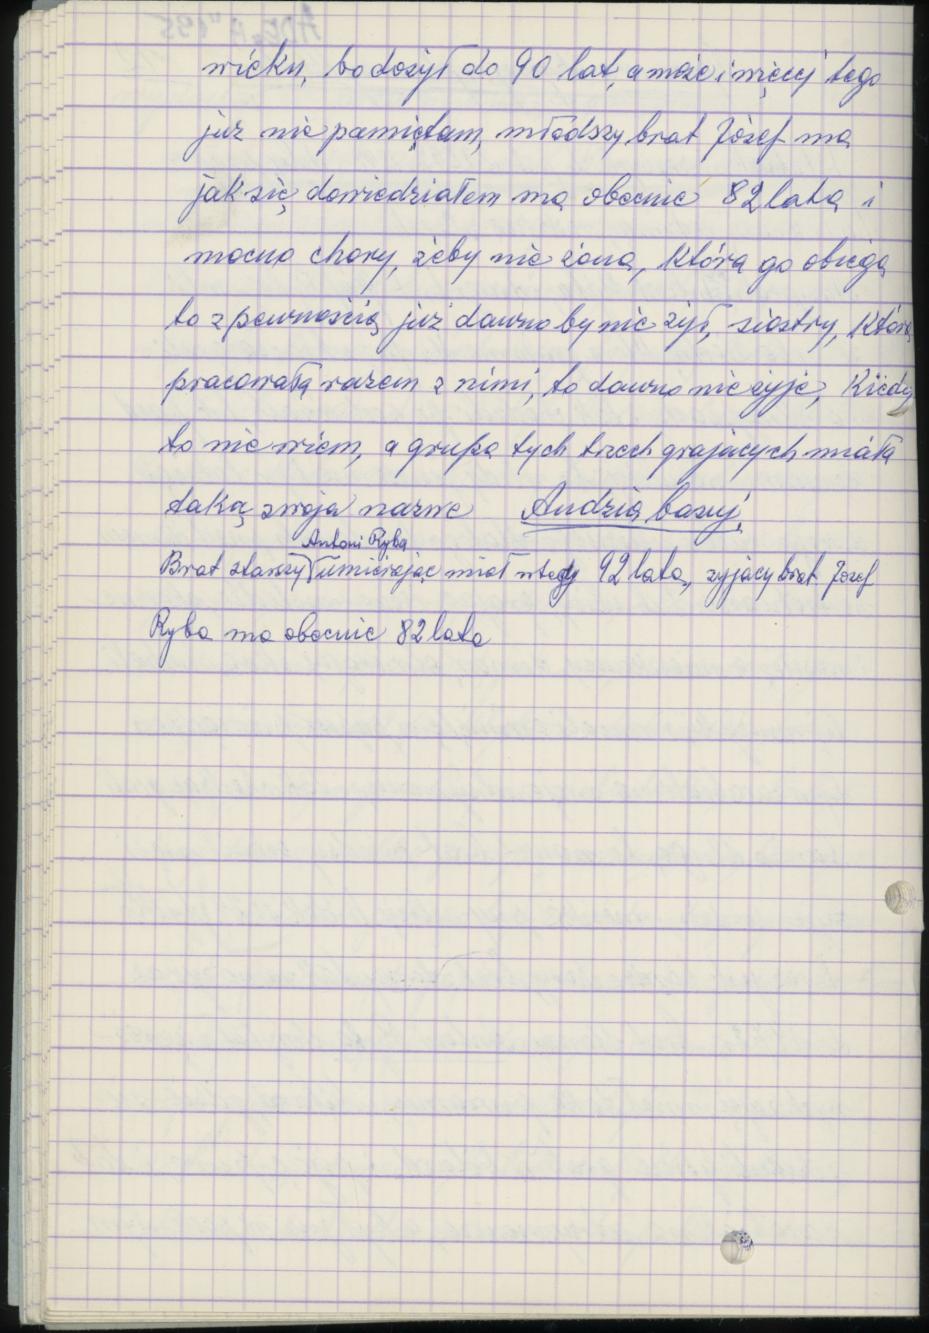 wieku, bo dożył do 90 lat, a może i więcej tego
już nie pamiętam, młodszy brat Józef ma
jak się dowiedziałem ma obecnie 82 lata i
mocno chory, żeby nie żona, która go obiega
to z pewnością już dawno by nie żył, siostry, która
pracowała razem z nimi, to dawno nie żyje, Kiedy
to nie wiem, a grupa tych trzech grajacych miała
taką swoja nazwe
Antoni Ryba
Brat starszy umierając miał wtedy 92 lata, zyjacy brat Jozef
Ryba ma obecnie 82 lata